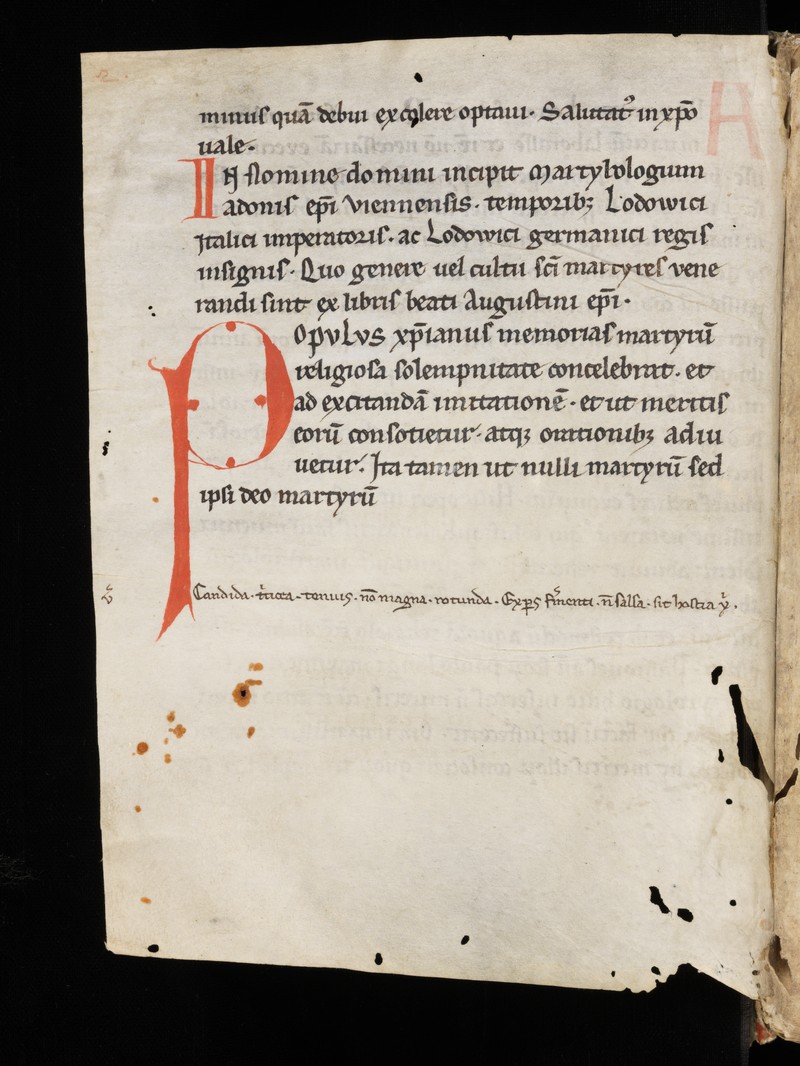 minus quā debui excolere optaui. Salutat᷒ in xp̄o
uale.
IN Nomine domini incipit Martyrologium
adonis ep̄i viennensis. temporibꝫ Lodowici
Italici imperatoris. ac Lodowici germanici regis
insignis. Quo genere uel cultu sc̄i martyres vene
randi sint ex libris beati Augustini ep̄i.
POpuLuS xp̄ianus memorias martyrū
religiosa solempnitate concelebrat. et
ad excitandā imitationē. et ut meritis
eorū consotietur. atqꝫ orationibꝫ adiu
uetur. Ita tamen ut nulli martyrū sed
ipsi deo martyrū
Candida. t͛ticea. tenuis. nō magna. rotunda. Exꝑs f͛menti. n̄ salsa. sit hostia